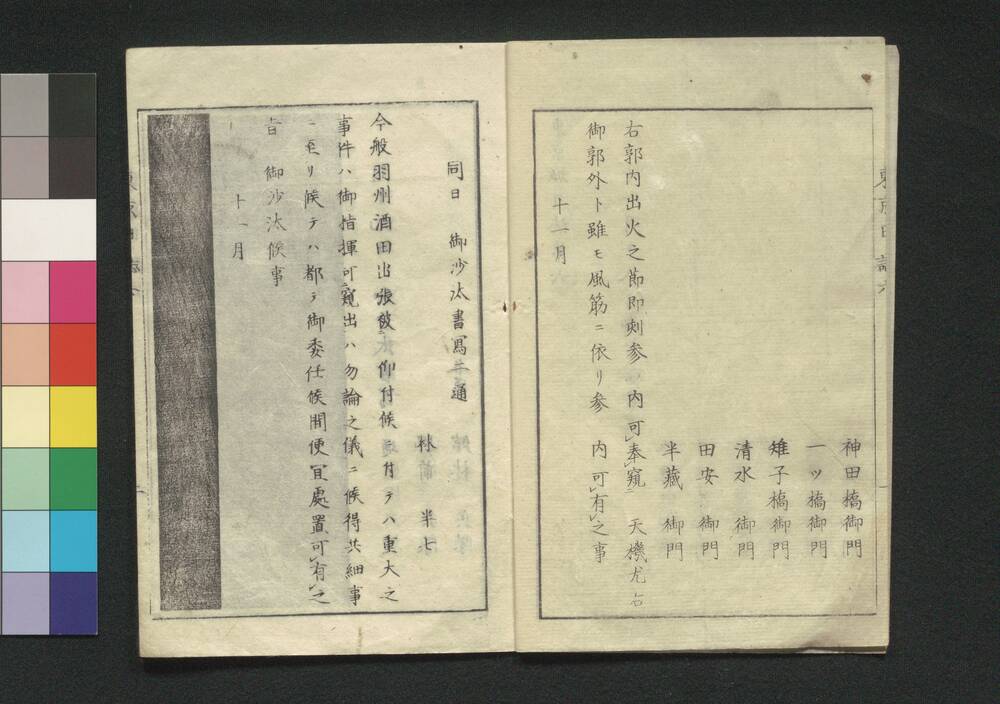 神田橋御門
一ツ橋御門
雉子橋御門
清水　御門
田安　御門
半藏　御門
右郭内出火之節即刻参　内可奉窺　天機尤右
御郭外ト雖モ風筋ニ依リ参　内可有之事
十一月
同日　御沙汰書寫二通
林　半七
今般羽州酒田出張被　仰付候付テハ重大之
事件ハ御指揮可窺出ハ勿論之儀ニ候得共細事
ニ至リ候テハ都テ御委任候間便宜處置可有之
旨　御沙汰候事
十一月